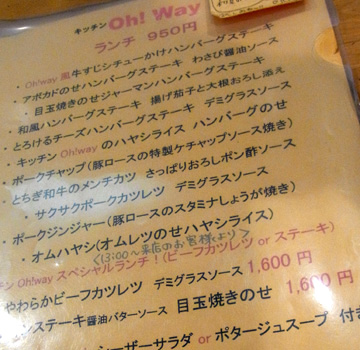 キッチン Oh! Way
ランチ 950円
・Oh!way風牛すじシチューかけハンバーグステーキ
・アボカドのせハンバーグステーキ わさび醤油ソース
・目玉焼きのせジャーマンハンバーグステーキ
・和風ハンバーグステーキ 揚げ茄子と大根おろし添え
・とろけるチーズハンバーグステーキ デミグラスソース
・キッチンOh!wayのハヤシライス ハンバーグのせ
・ポークチャップ(豚ロースの特製ケチャップソース焼き)
・とちぎ和牛のメンチカツ さっぱりおろしポン酢ソース
・サクサクポークカツレツ デミグラスソース
・ポークジンジャー(豚ロースのスタミナしょうが焼き)
・オムハヤシ(オムレツのせハヤシライス)
<13:00〜来店のお客様より>
チンOh!wayスペシャルランチ!(ビーフカツレツ or ステーキ)
やわらかビーフカツレツ デミグラスソース 1,600円
ステーキ醤油バターソース 目玉焼きのせ 1,600円
シーザーサラダ or ポタージュスープ 付き